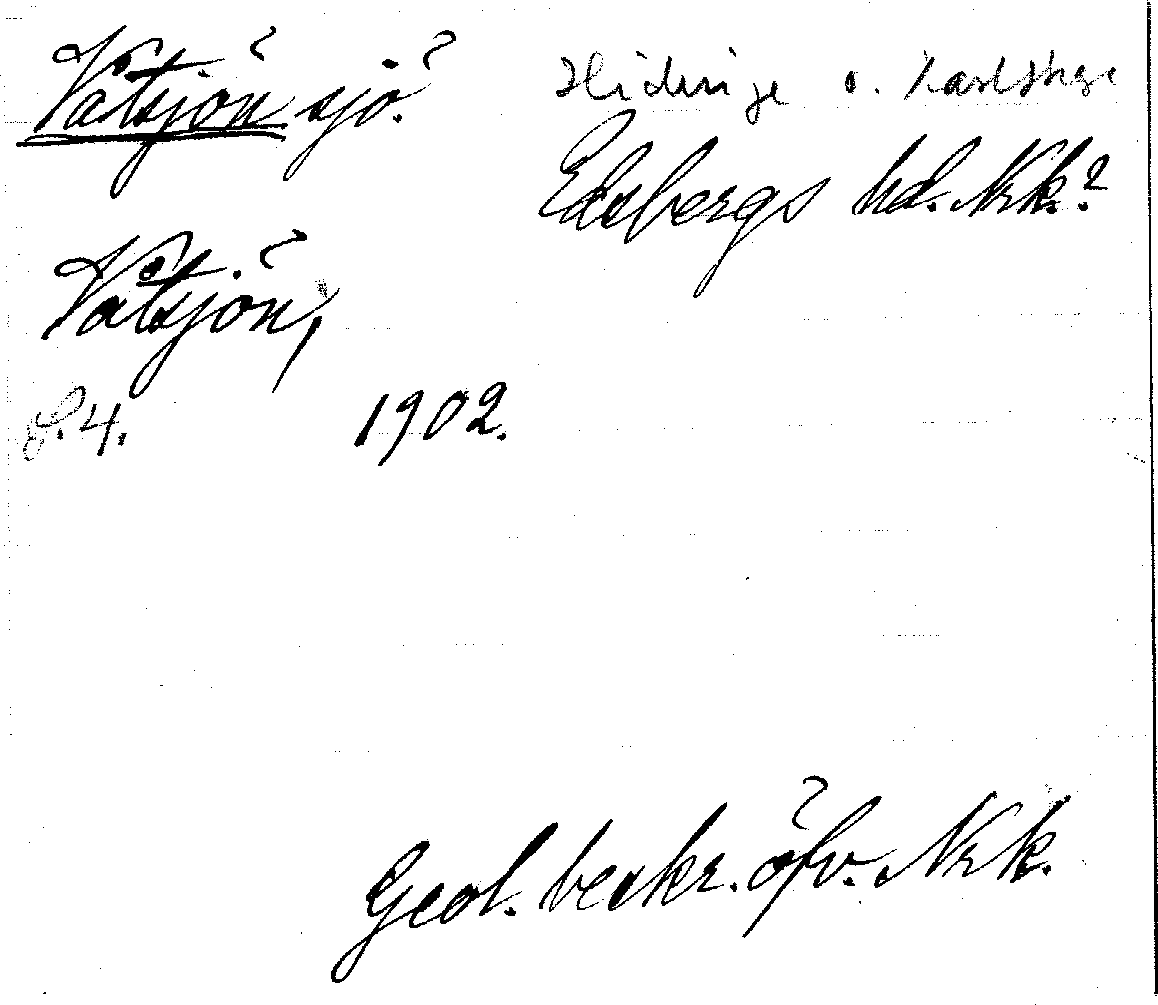 Våtsjön sjö.
Hidinge o. Karlskoga
Edsbergs hd. Nrk.?
Våtsjön,
S. 4. 1902.
Geol. beskr. öfv. Nrk.